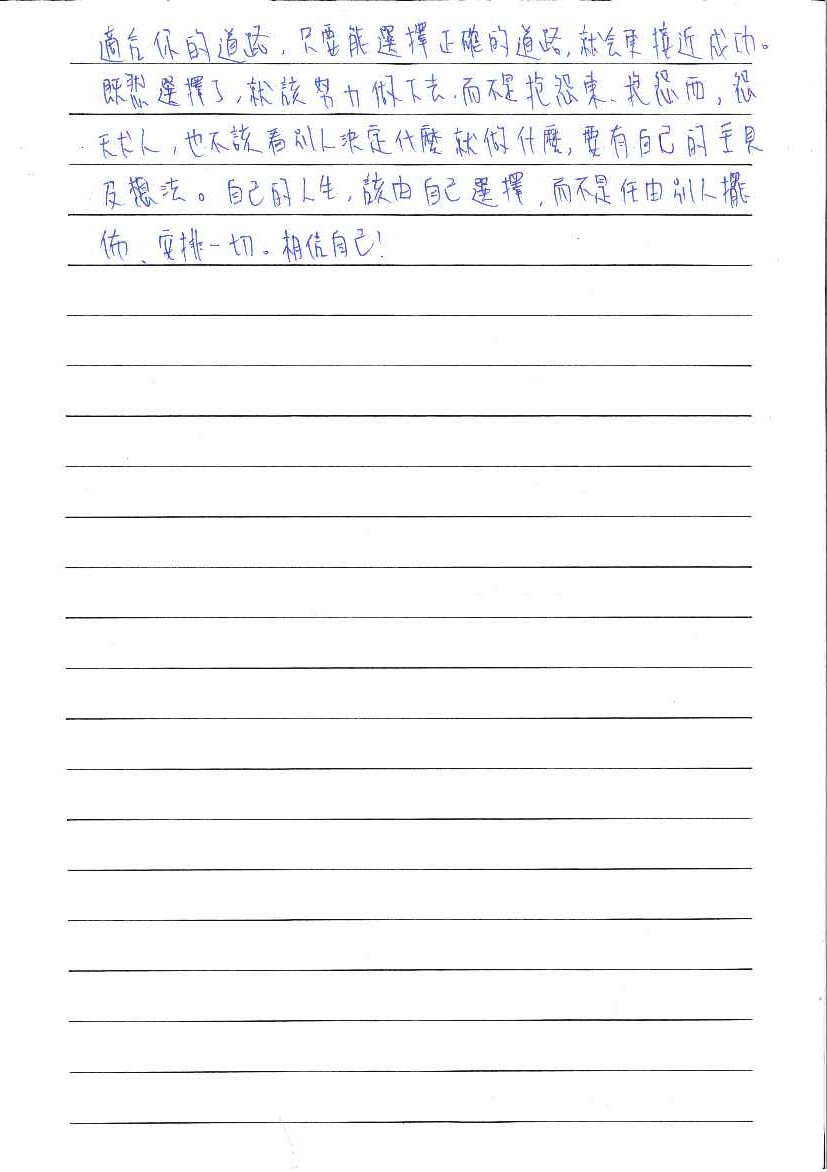 適合你的道路，只要能選擇正確的道路，就会更接近成功。
既然選擇了，就該努力做下去，而不是抱怨東、抱怨西，怨
天尤人，也不該看別人決定什麼就做什麼，要有自己的主見
及想法。自己的人生，該由自己選擇，而不是任由別人擺
佈、安排一切。相信自己！